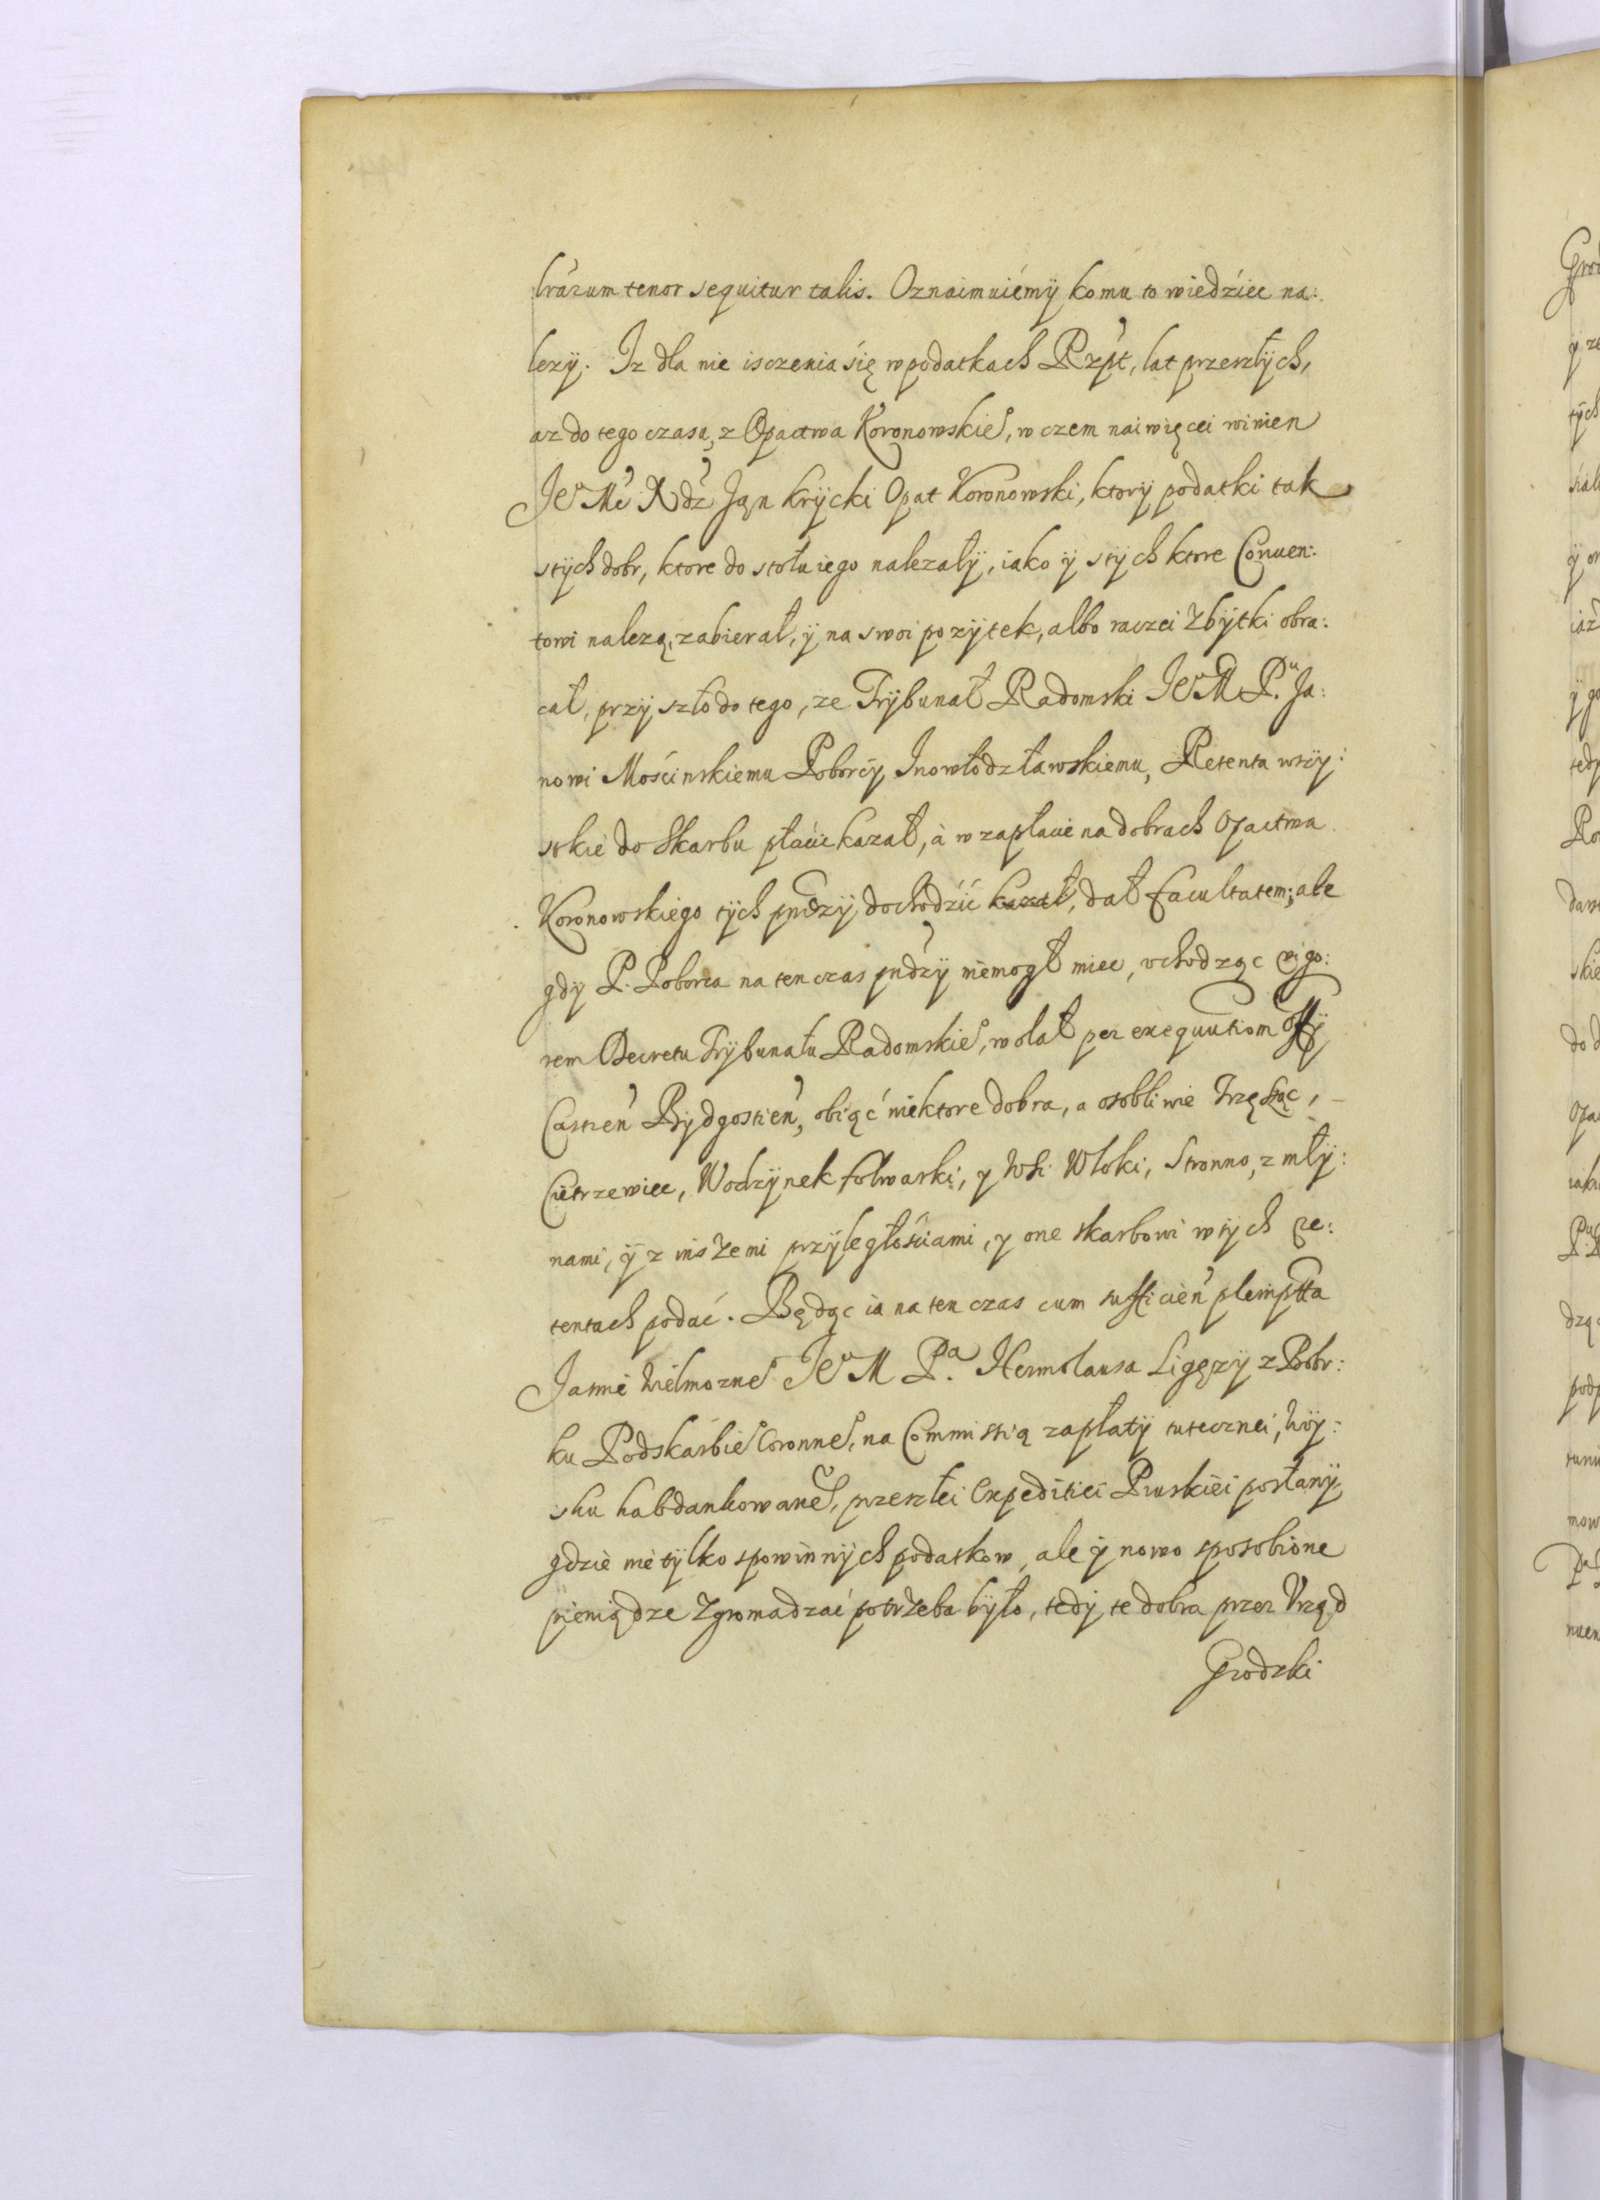 lrarum tenor sequitur talis. Oznaimuiemÿ komu to wiedziec na:
lezÿ. Iz dla nie isczenia się w podatkach Rzpt, lat przeszłÿch,
az do tego czasu, z Opactwa Koronowskie°, w czem naiwięcei winien
Je° Mć Xdz Jan Krÿcki Opat Koronowski, ktorÿ podatki tak
stÿch dobr, ktore do stołu iego nalezałÿ, iako ÿ stÿch ktore Conuen:
towi nalezą, zabierał, ÿ na swoi pozÿtek, albo raczei Zbÿtki obra:
cał, przÿszło do tego, ze Trÿbunał Radomski Je° M P.u Ja:
nowi Mościnskiemu Poborcÿ Inowłodzławskiemu, Retenta wszÿ:
stkie do Skarbu płacic kazał, à w zapłacie na dobrach Opactwa
Koronowskiego tÿch pndzÿ dochodzić kazał, dał facultatem; ale
gdÿ P. Poborca na ten czas pndzÿ niemogł miec, vchodząc vigo:
rem Decretu Trÿbunału Radomskie°, wolał per exequutiom Offÿ
Castren Bÿdgostien, obiąć niektore dobra, a osobliwie Trzęsłąc,
Cietrzewiec, Wodzÿnek folwarki, y Wsi Włoki, Stronno, z młÿ:
nami, ÿ z inszemi przÿległościami, y one skarbowi w tÿch Re:
tentach podać. Będąc ia na ten czas cum sufficien plenipotta
Jasnie Wielmozne° Je° M P.a Hermolausa Ligęzÿ z Bobr:
ku Podskarbie° Coronne°, na Commissią zapłatÿ tutecznei, Woÿ:
sku habdankowane°, przeszłei Expeditiei Pruskiei posłanÿ,
gdzie nie tÿlko spowinnÿch podatkow, ale ÿ nowo sposobione
pieniądze Zgromadzać potrzeba bÿło, tedÿ te dobra przez Vrząd
Grodzki